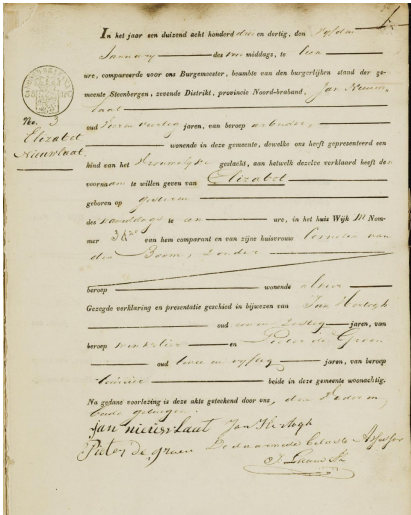 In het jaar een duizend acht honderd drie en dertig, den vyfden
January des voor middags, te tien
ure, compareerde voor ons Burgemeester, beambte van den burgerlijken stand der ge-
meente Steenbergen, zevende Distrikt, provincie Noord-braband, Jan Nieuw-
laat
oud jaren, van beroep arbeider
No. 3
Elizabet
Nieuwlaat
wonende in deze gemeente, dewelke ons heeft gepresenteerd een
kind van het Vrouwelijke geslacht, aan hetwelk dezelve verklaard heeft den
voornaam te willen geven van Elizabet
geboren op gisteren
des namiddags te een ure, in het huis Wijk M Num-
mer 382 van hem comparant en van zijne huisvrouw Cornelia van
den Boom, zonder
beroep wonende alhier
Gezegde verklaring en presentatie geschied in bijwezen van Jan Hertogh
oud jaren, van
beroep winkelier en Pieter de Groen
oud twee en vyftig jaren, van beroep
beide in deze gemeente woonachtig.
Na gedane voorlezing is deze akte geteekend door ons, den Vader en
beide getuigen
Jan nieuwlaut Jan Hertogh
Pieter De groen De Assessor